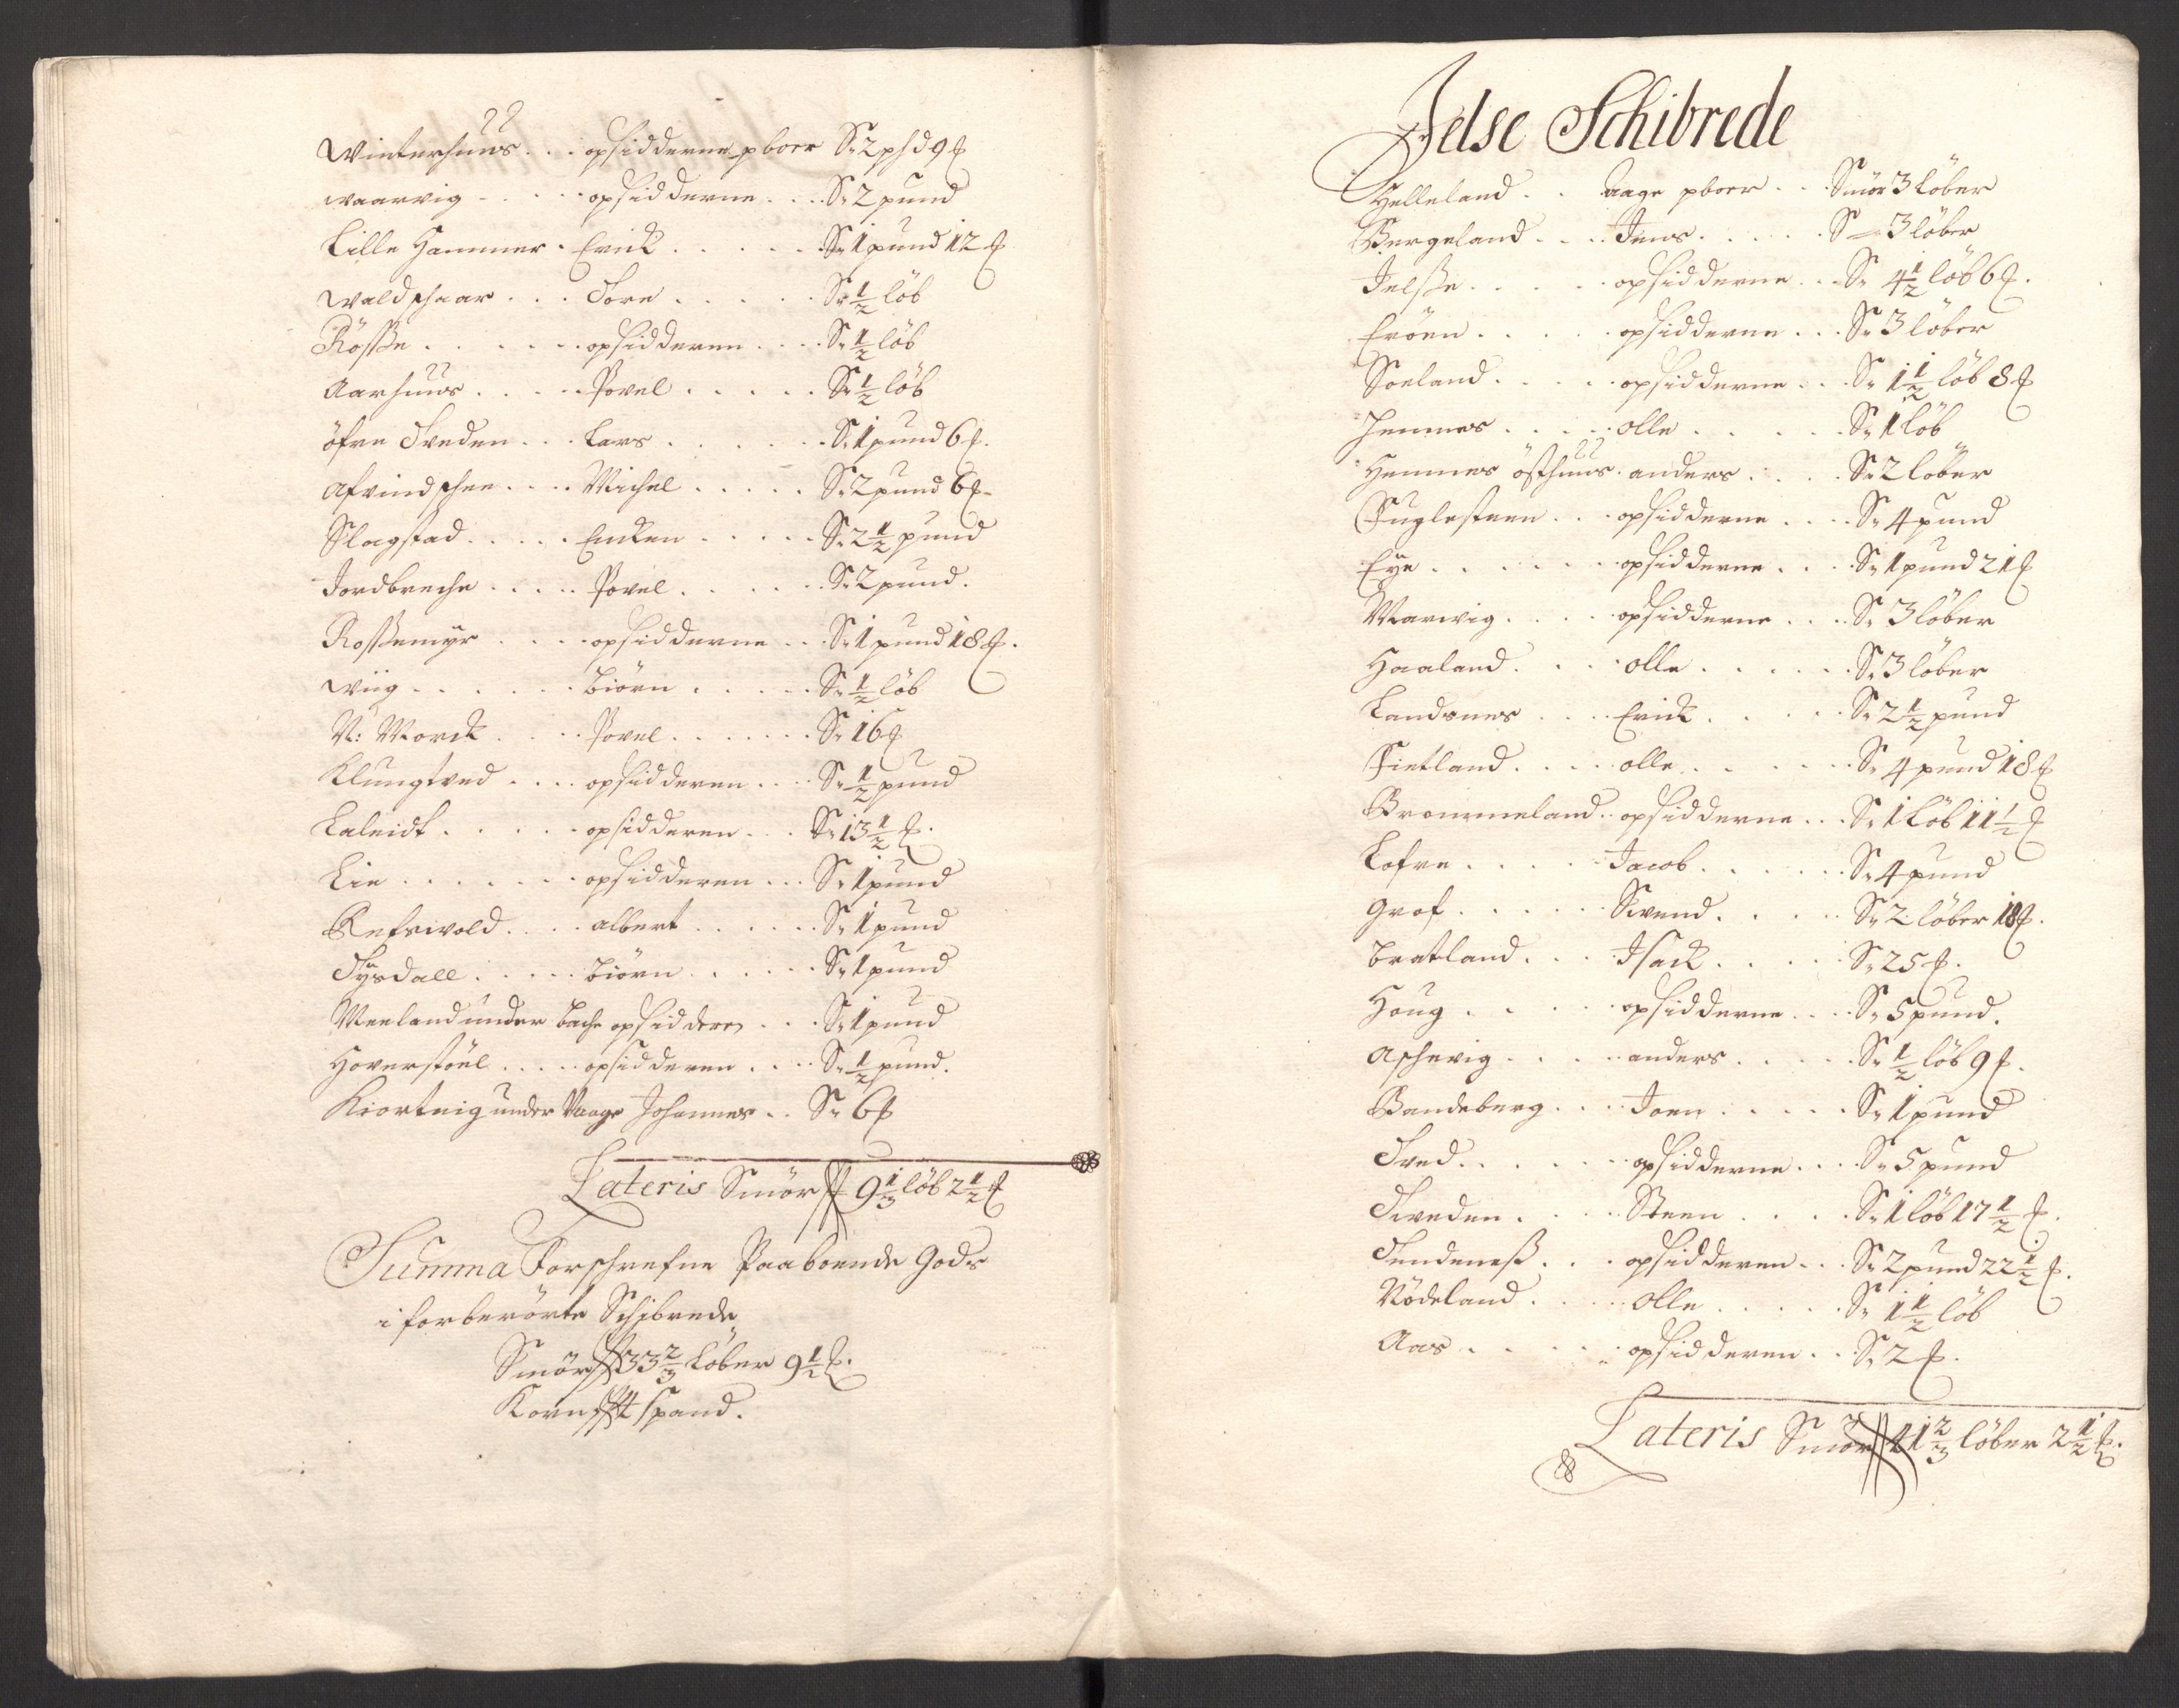 Winterhuus . . . opsidderne pboer S: 2 phd 9 ℔
waarvig - . . . . opsidderne . . . S: 2 pund
Lille Hammer . Erick . . . . . S: 1 pund 12 ℔
waldschaar . . . Tore . . . . . S: 1/2 löb
Rösse . . . . . . opsidderen . . . S: 1/2 löb
Aarhuus . . . . Povel . . . . . S: 1/2 löb
öfre Tveden . . . Lars . . . . . S: 1 pund 6 ℔.
Afvindschee . . . . Michel . . . . . S: 2 pund 6 ℔
Slagstad . . . . . Encken . . . . . S: 2 1/2 pund
Jordbreche . . . . . Povel . . . . . S: 2 pund.
Rossemyr . . . . opsidderne . . . S: 1 pund 18 ℔.
wiig . . . . . . . biörn . . . . . S: 1/2 löb
N: Morck . . . . Povel . . . . . . S: 16 ℔
Klungtved . . . . opsidderen . . . S: 1/2 pund
Laleidt . . . . . opsidderen . . . S: 13 1/2 ℔.
Lie . . . . . . . opsidderen . . . S: 1 pund
Refsvold . . . . albert . . . . . S: 1 pund
Tysdall . . . . . biörn . . . . . S: 1 pund
Meeland under bache opsidderen . . . S: 1 pund
Hoverstöel . . . . . opsidderen . . . S: 1/2 pund.
Kiorteig under Vaage Johannes . . S: 6 ℔
Lateris Smör 9 1/3 löb 2 1/2 ℔
Summa Forschrefne Paaboende Gods
i forberörte Schibrede
Smör 33 2/3 Löber 9 1/2 ℔.
Korn 4 spand.
Jelse Schibrede
Helleland . . Aage pboer . . Smör 3 Löber
Bergeland . . . Jens . . . . . S 3 löber
Jelsse . . . . . opsidderne . . S: 4 1/2 löb 6 ℔.
Eröen . . . . . opsidderne . . . S: 3 löber
Soeland . . . . . opsidderne . . S: 1 1/2 löb 8 ℔
Hemmes . . . . . olle . . . . . S: 1 löb
Hemmes östhuus . anders . . . . S: 2 löber
Fuglesteen . . . opsidderne . . . . S: 4 pund
Eye . . . . . . opsidderne . . . S: 1 pund 21 ℔
Marvig . . . . . opsidderne . . . . S: 3 löber
Haaland . . . . olle . . . . . S: 3 löber
Landsnes . . . . Erick . . . . . S: 2 1/2 pund
Fietland . . . . . olle . . . . . . S: 4 pund 18 ℔
Brommeland . . opsidderne . . . S: 1 Löb 11 1/2 ℔
Lofre . . . . . Jacob . . . . . S: 4 pund
Grof . . . . . Svend . . . . . S: 2 löber 18 ℔.
bratland . . . Isack . . . . S: 25 ℔.
Houg . . . . . opsidderne . . . . S: 5 pund.
Aschevig . . . . anders . . . . . S: 1/2 löb 9 ℔.
Bandeberg . . . Joen . . . . . S: 1 pund
Tved . . . . . . opsidderne . . . . S: 5 pund
Tveden . . . . Steen . . . . . S: 1 löb 17 1/2 ℔.
Tendeness . . . opsidderen . . . S: 2 pund 22 1/2 ℔.
Nödeland . . . . . olle . . . . . S: 1 1/2 löb
Aas . . . . . . opsidderen . . S: 2 ℔.
Lateris Smör 41 2/3 löber 2 1/2 ℔.